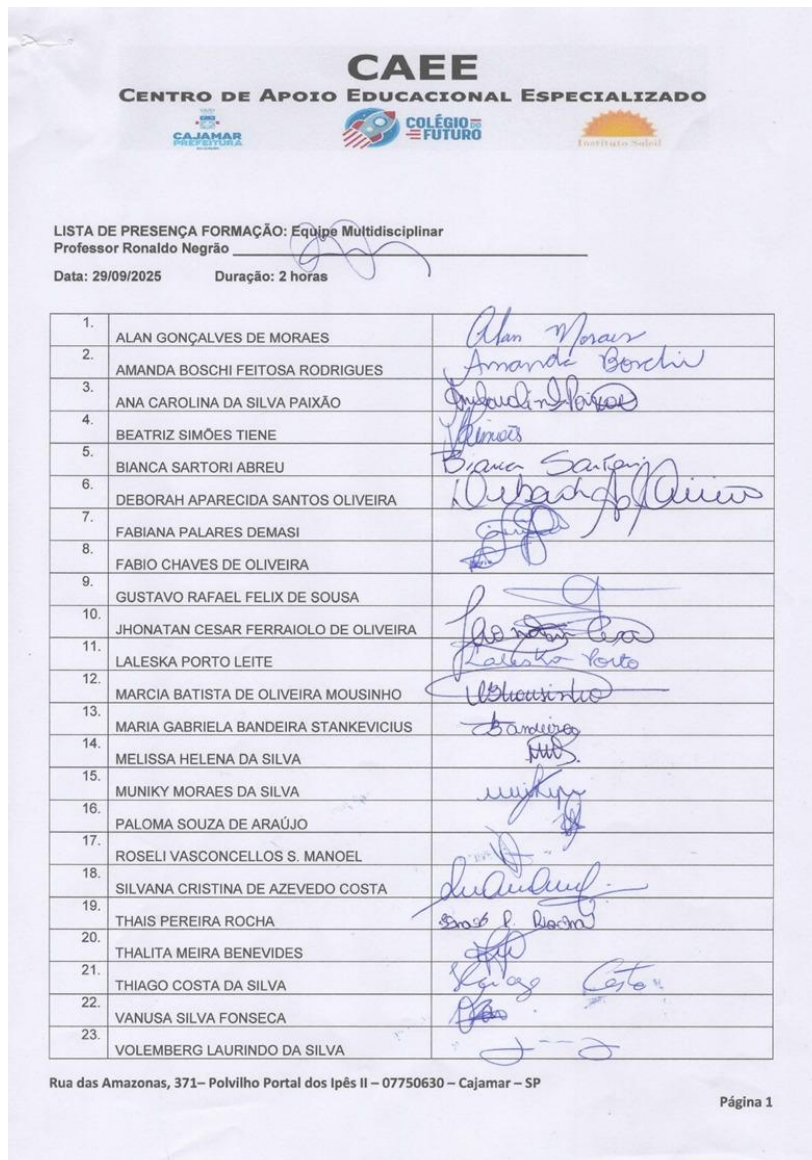 CAEE
CENTRO DE APOIO EDUCACIONAL ESPECIALIZADO
CAJAMAR
PREFEITURA
COLÉGIO DO
FUTURO
Instituto Soleil
LISTA DE PRESENÇA FORMAÇÃO: Equipe Multidisciplinar
Professor Ronaldo Negrão
Data: 29/09/2025 Duração: 2 horas
1. ALAN GONÇALVES DE MORAES Alan Moraes
2. AMANDA BOSCHI FEITOSA RODRIGUES Amanda Boschi
3. ANA CAROLINA DA SILVA PAIXÃO
4. BEATRIZ SIMÕES TIENE
5. BIANCA SARTORI ABREU Bianca Sartori
6. DEBORAH APARECIDA SANTOS OLIVEIRA
7. FABIANA PALARES DEMASI
8. FABIO CHAVES DE OLIVEIRA
9. GUSTAVO RAFAEL FELIX DE SOUSA
10. JHONATAN CESAR FERRAIOLO DE OLIVEIRA
11. LALESKA PORTO LEITE Laleska Porto
12. MARCIA BATISTA DE OLIVEIRA MOUSINHO
13. MARIA GABRIELA BANDEIRA STANKEVICIUS Bandeira
14. MELISSA HELENA DA SILVA
15. MUNIKY MORAES DA SILVA
16. PALOMA SOUZA DE ARAÚJO
17. ROSELI VASCONCELLOS S. MANOEL
18. SILVANA CRISTINA DE AZEVEDO COSTA
19. THAIS PEREIRA ROCHA Thais P. Rocha
20. THALITA MEIRA BENEVIDES
21. THIAGO COSTA DA SILVA Thiago Costa
22. VANUSA SILVA FONSECA
23. VOLEMBERG LAURINDO DA SILVA
Rua das Amazonas, 371– Polvilho Portal dos Ipês II – 07750630 – Cajamar – SP
Página 1